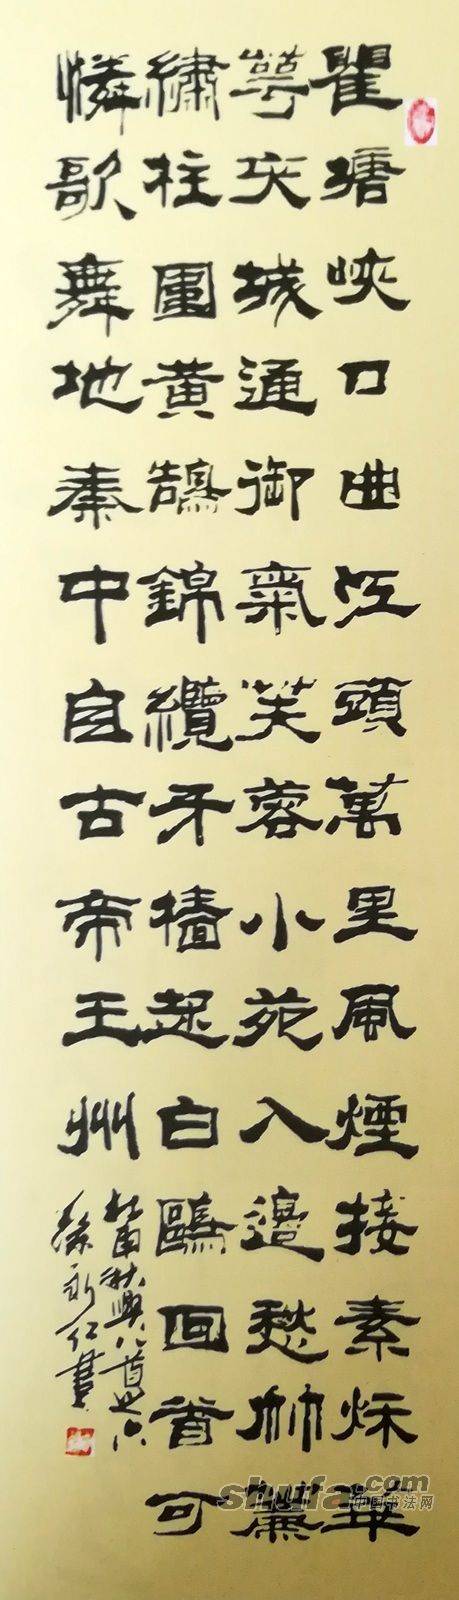 瞿塘峽口曲江頭萬里風煙接素秌華
萼夾城通御氣芙蓉小苑入邊愁珠簾
繡柱圍黃鵠錦纜牙檣起白鷗回首可
憐歌舞地秦中自古帝王州
杜甫秋興八首之六
徐永仁書
shufa.com
中国书法网